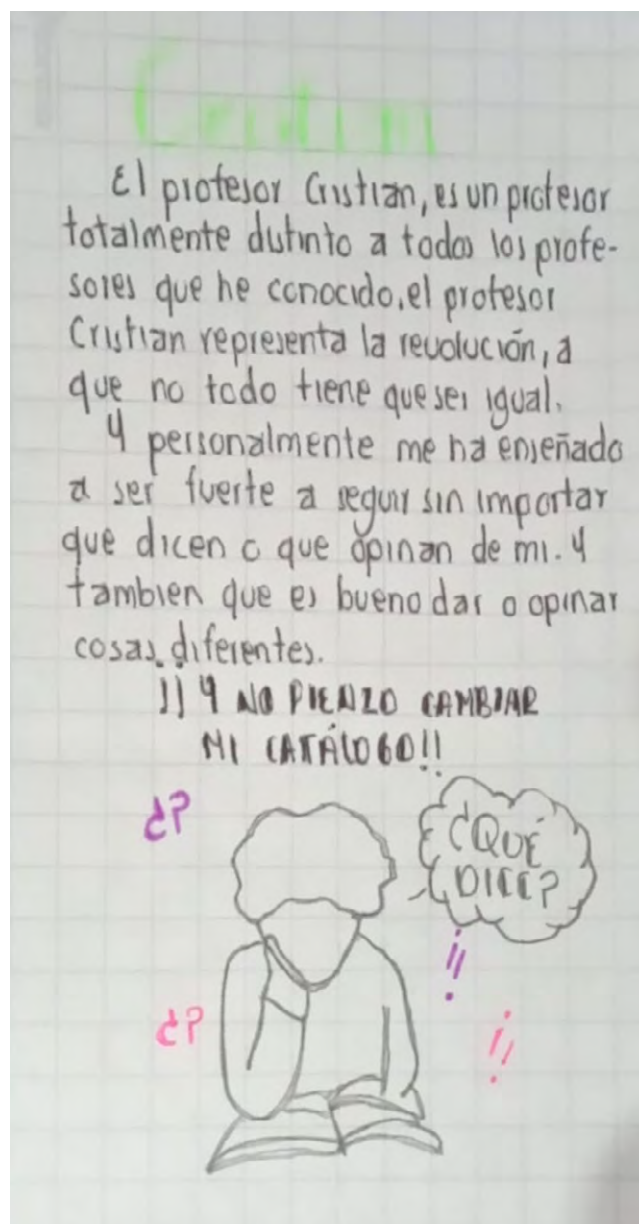 Cristian
El profesor Cristian, es un profesor
totalmente distinto a todos los profe-
sores que he conocido, el profesor
Cristian representa la revolución, a
que no todo tiene que ser igual.
Y personalmente me ha enseñado
a ser fuerte a seguir sin importar
que dicen o que opinan de mi. Y
tambien que es bueno dar o opinar
cosas diferentes.
¡¡ Y NO PIENZO CAMBIAR
MI CATÁLOGO!!
¿?
¿QUÉ
DICE?
¡!
¿?
¡!